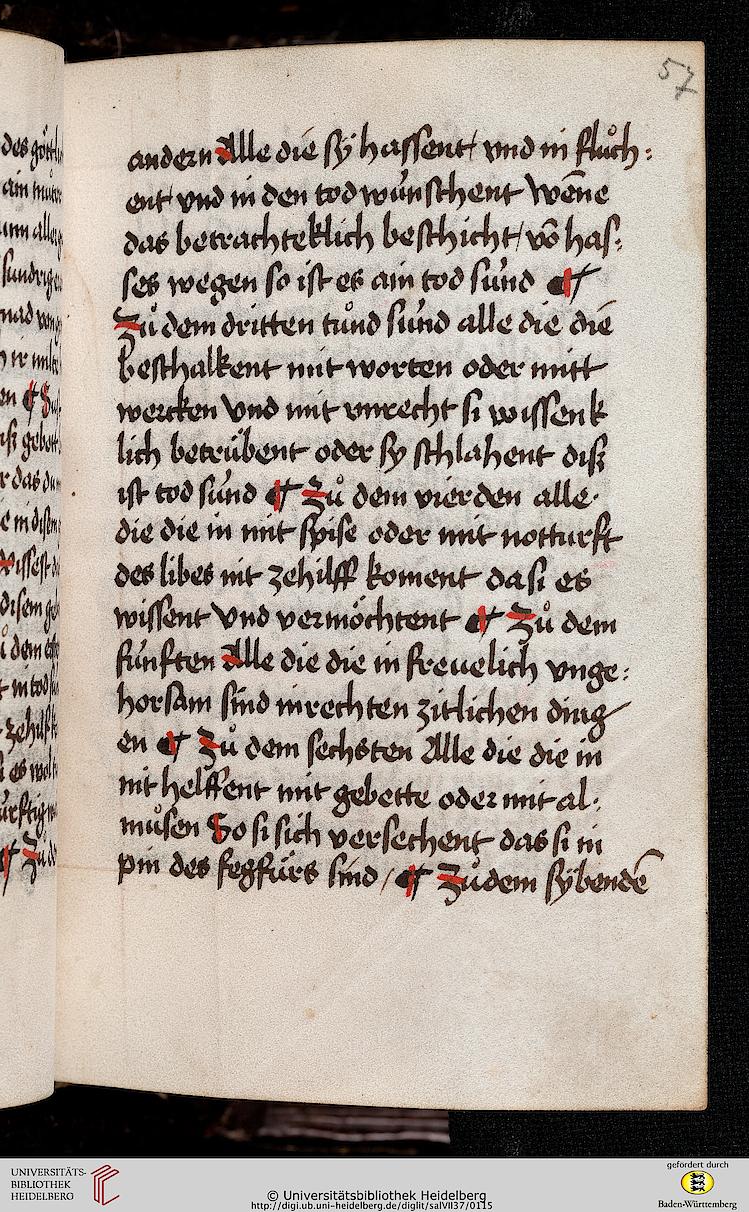 57
andern Alle die sÿ hassent / vnd in flůch:
ent / vnd in den tod wúnschent Wēne
das betrachteklich beschicht / vō has:
ses wegen so ist es ain tod súnd ¶
Zů dem dritten tůnd súnd alle die die
beschalkent mit worten oder mitt
wercken vnd mit vnrecht si wissenk
lich betrübent oder sy schlahent diß
ist tod súnd ¶ Zů dem vierden alle
die die in mit spise oder mit notturft
des libes nit zehilff koment da si es
wissent vnd vermöchtent ¶ Zů dem
fúnften Alle die die in freuelich vnge:
horsam sind in rechten zitlichen ding
en ¶ Zů dem sechsten Alle die die in
nit helffent mit gebette oder mit al:
můsen So si sich versechent das si in
pin des fegfúrs sind / ¶ Zů dem sÿbendē
UNIVERSITÄTS-
BIBLIOTHEK
HEIDELBERG
© Universitätsbibliothek Heidelberg
http://digi.ub.uni-heidelberg.de/diglit/salVII37/0115
gefördert durch
Baden-Württemberg